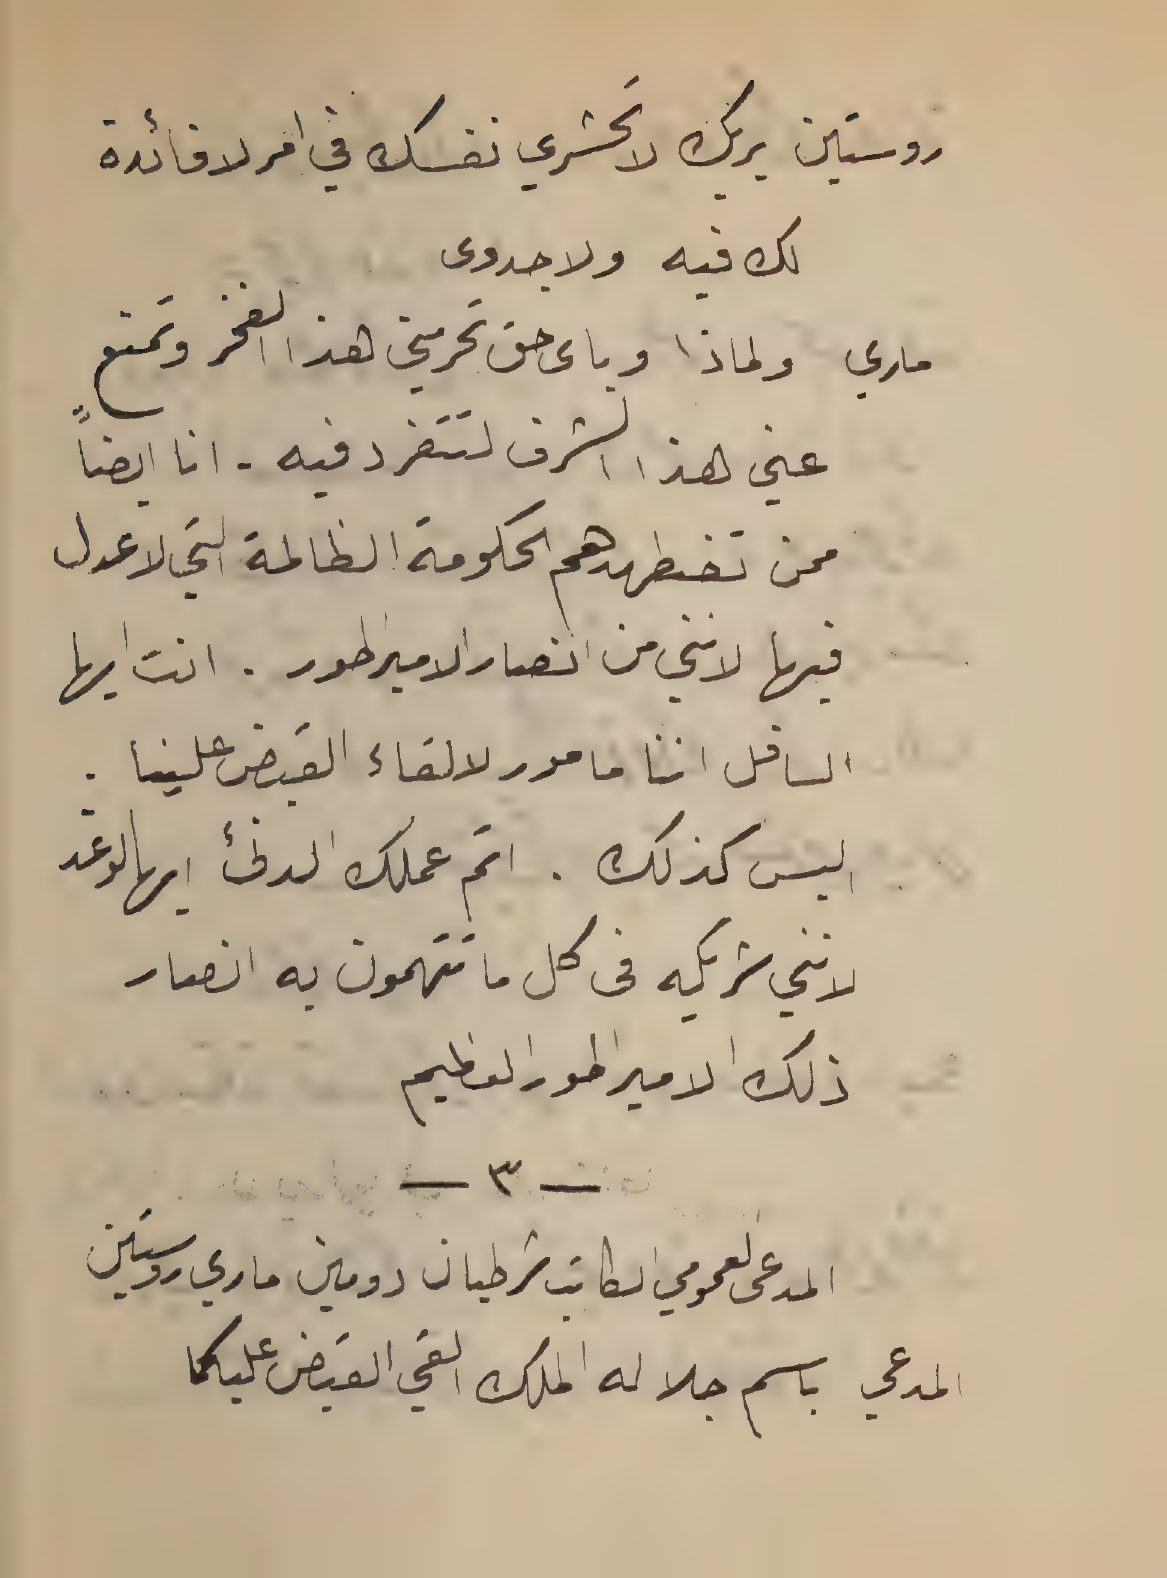 روستين بربك لا تحشري نفسك في امر لا فائدة
لك فيه ولا جدوى
ماري ولماذا وباى حق تحرمني هذا الفخر وتمنع
عني هذا الشرف لتتفرد فيه - انا ايضاً
ممن تضطهدهم الحكومة الظالمة التي لا عدل
فيها لانني من انصار الامبراطور . انت ايها
السافل اننا مامور لالقاء القبض علينا .
اليس كذلك . اتم عملك الدنئ ايها الوغد
لانني شريكه فى كل ما تتهمون به انصار
ذلك الامبراطور العظيم
— ٣ —
المدعى العمومي الكاتب شرطيان دومين ماري روستين
المدعي باسم جلاله الملك القي القبض عليكما